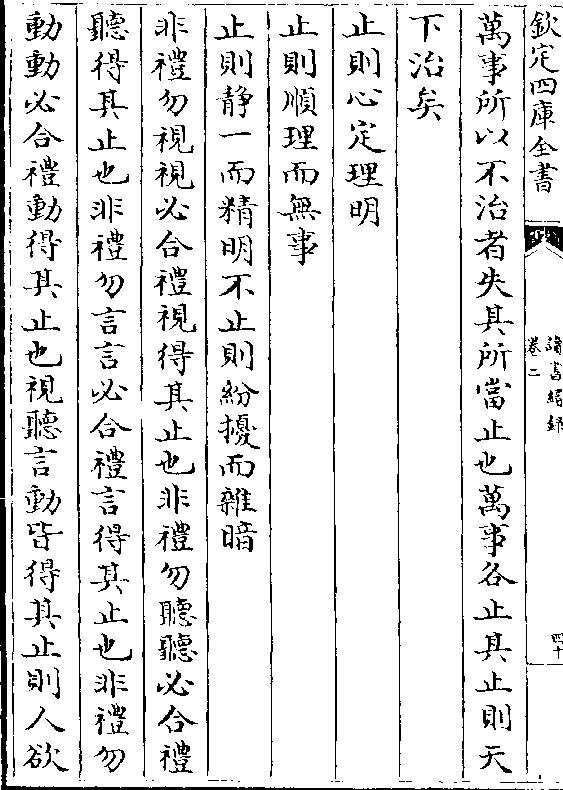 欽定四庫全書
讀書續錄
卷二
四十
萬事所以不治者失其所當止也萬事各止其止則天
下治矣
止則心定理明
止則順理而無事
止則靜一而精明不止則紛擾而雜暗
非禮勿視視必合禮視得其止也非禮勿聽聽必合禮
聽得其止也非禮勿言言必合禮言得其止也非禮勿
動動必合禮動得其止也視聽言動皆得其止則人欲